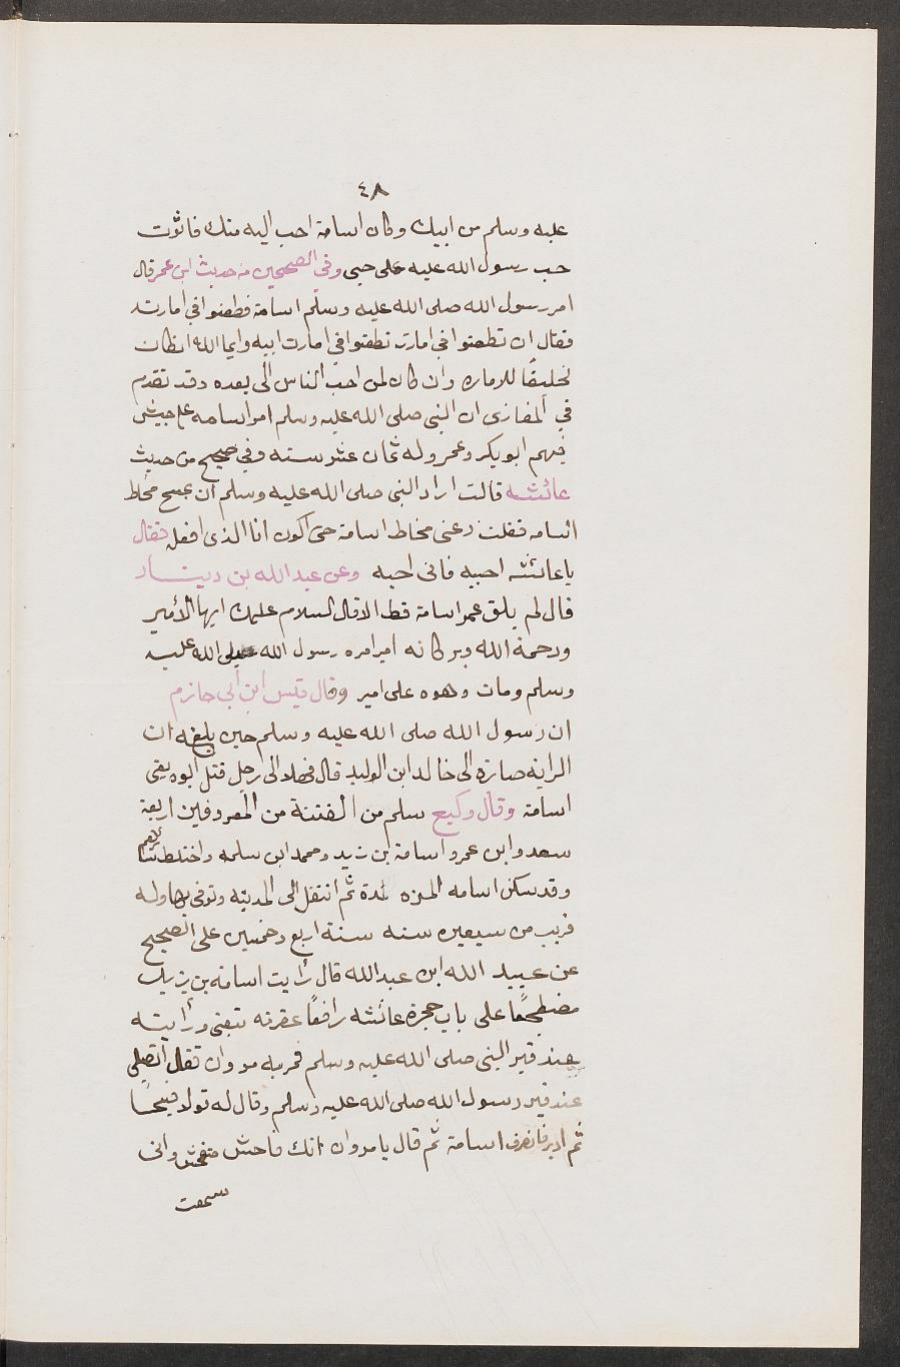 ٤٨
عليه وسلم من ابيك وكان اسامة احب اليه منك فاثرت
حب رسول الله عليه على حبى وفي الصحيحين من حديث ابن عمر قال
امر رسول الله صلى الله عليه وسلم اسامة فطعنوا في امارته
فقال ان تطعنوا في امارته تطعنوا في امارت ابيه وايما الله ان كان
لخليقًا للاماره وان كان لمن احب الناس الى بعده وقد تقدم
في المغازى ان النبى صلى الله عليه وسلم امر اسامه على جيش
فيهم ابو بكر وعمر وله ثمان عشر سنه وفي صحيح من حديث
عائشه قالت اراد النبى صلى الله عليه وسلم ان يمسح مخاط
اسامه فقلت دعنى مخاط اسامة حتى اكون انا الذى افعل فقال
يا عائشه احبيه فانى احبه وعن عبد الله بن دينار
قال لم يلق عمر اسامة قط الا قال السلام عليك ايها الأمير
ورحمة الله وبركاته امير امره رسول الله صلى الله عليه
وسلم ومات وهوه على امير وقال قيس ابن ابى حازم
ان رسول الله صلى الله عليه وسلم حين بلغه ان
الراية صارة الى خالد ابن الوليد قال فهلا الى رجل قتل ابوه يعنى
اسامة وقال وكيع سلم من الفتنة من المعروفين اربعة
سعد وابن عمر واسامة بن زيد ومحمد ابن سلمه واختلط سائرهم
وقد سكن اسامه المزه مدة ثم انتقل الى المدينه وتوفى بها وله
قريب من سبعين سنه سنة اربع وخمسين على الصحيح
عن عبيد الله ابن عبد الله قال رأيت اسامة بن زيد
مضطجعًا على باب حجرة عائشه رافعًا عقرته يتغنى ورأيته
عند قبر النبى صلى الله عليه وسلم فمر به مروان فقال اتصلى
عند قبر رسول الله صلى الله عليه وسلم وقال له قولا قبيحًا
ثم ادبر فانصرف اسامة ثم قال يا مروان انك فاحش متفحش وانى
سمعت